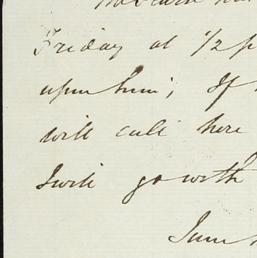 Friday at 1/2 p
upon him; If
will call here
I will go with
I am